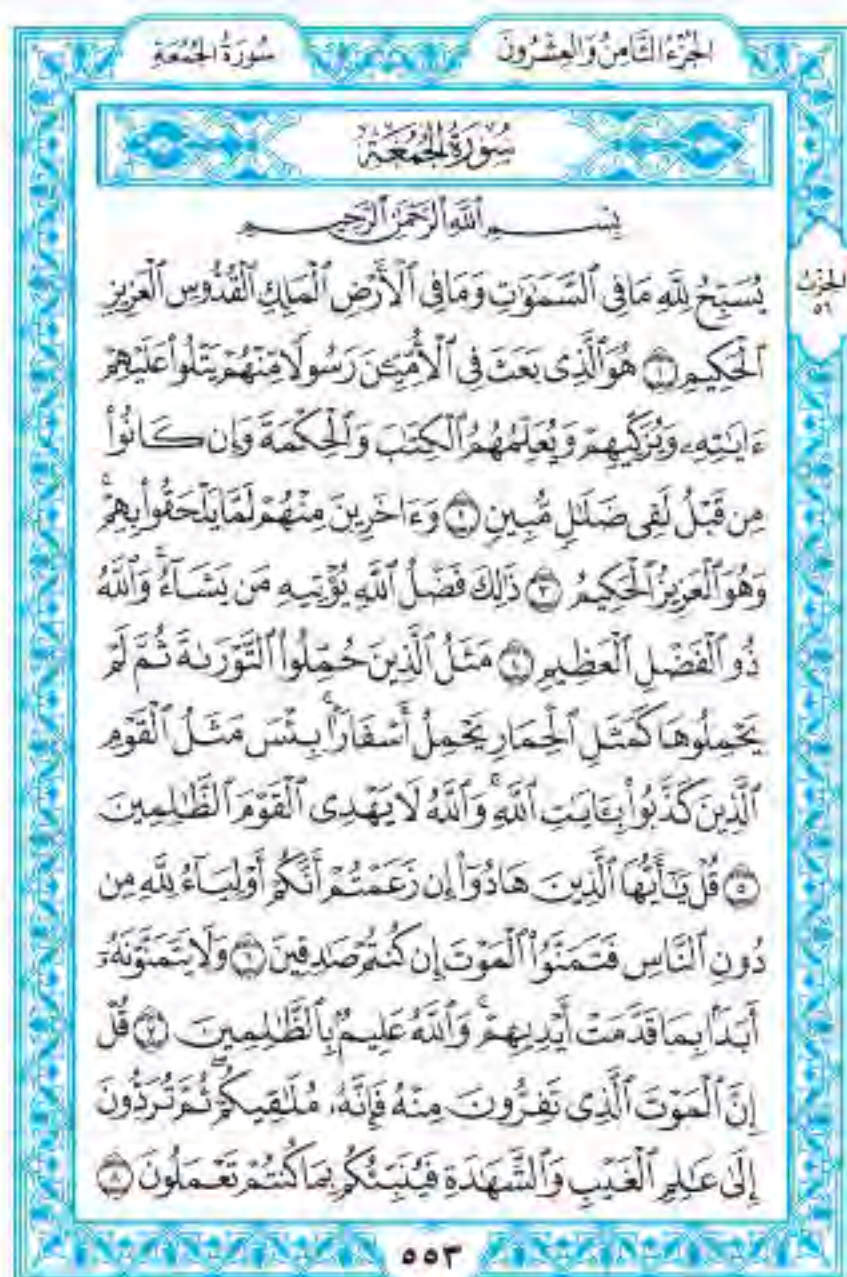 الجُزْءُ الثَّامِنُ وَالعِشْرُونَ
سُورَةُ الجُمُعَةِ
سُورَةُ الجُمُعَةِ
بِسْمِ ٱللَّهِ ٱلرَّحْمَٰنِ ٱلرَّحِيمِ
يُسَبِّحُ لِلَّهِ مَا فِي ٱلسَّمَٰوَٰتِ وَمَا فِي ٱلْأَرْضِ ٱلْمَلِكِ ٱلْقُدُّوسِ ٱلْعَزِيزِ
الحِزْبُ
٥٦
ٱلْحَكِيمِ ١ هُوَ ٱلَّذِي بَعَثَ فِي ٱلْأُمِّيِّـۧنَ رَسُولًا مِّنْهُمْ يَتْلُوا۟ عَلَيْهِمْ
ءَايَٰتِهِۦ وَيُزَكِّيهِمْ وَيُعَلِّمُهُمُ ٱلْكِتَٰبَ وَٱلْحِكْمَةَ وَإِن كَانُوا۟
مِن قَبْلُ لَفِي ضَلَٰلٍ مُّبِينٍ ٢ وَءَاخَرِينَ مِنْهُمْ لَمَّا يَلْحَقُوا۟ بِهِمْ ۚ
وَهُوَ ٱلْعَزِيزُ ٱلْحَكِيمُ ٣ ذَٰلِكَ فَضْلُ ٱللَّهِ يُؤْتِيهِ مَن يَشَآءُ ۚ وَٱللَّهُ
ذُو ٱلْفَضْلِ ٱلْعَظِيمِ ٤ مَثَلُ ٱلَّذِينَ حُمِّلُوا۟ ٱلتَّوْرَىٰةَ ثُمَّ لَمْ
يَحْمِلُوهَا كَمَثَلِ ٱلْحِمَارِ يَحْمِلُ أَسْفَارًۢا ۚ بِئْسَ مَثَلُ ٱلْقَوْمِ
ٱلَّذِينَ كَذَّبُوا۟ بِـَٔايَٰتِ ٱللَّهِ ۚ وَٱللَّهُ لَا يَهْدِي ٱلْقَوْمَ ٱلظَّٰلِمِينَ
٥ قُلْ يَٰٓأَيُّهَا ٱلَّذِينَ هَادُوٓا۟ إِن زَعَمْتُمْ أَنَّكُمْ أَوْلِيَآءُ لِلَّهِ مِن
دُونِ ٱلنَّاسِ فَتَمَنَّوُا۟ ٱلْمَوْتَ إِن كُنتُمْ صَٰدِقِينَ ٦ وَلَا يَتَمَنَّوْنَهُۥٓ
أَبَدًۢا بِمَا قَدَّمَتْ أَيْدِيهِمْ ۚ وَٱللَّهُ عَلِيمٌۢ بِٱلظَّٰلِمِينَ ٧ قُلْ
إِنَّ ٱلْمَوْتَ ٱلَّذِي تَفِرُّونَ مِنْهُ فَإِنَّهُۥ مُلَٰقِيكُمْ ۖ ثُمَّ تُرَدُّونَ
إِلَىٰ عَٰلِمِ ٱلْغَيْبِ وَٱلشَّهَٰدَةِ فَيُنَبِّئُكُم بِمَا كُنتُمْ تَعْمَلُونَ ٨
٥٥٣